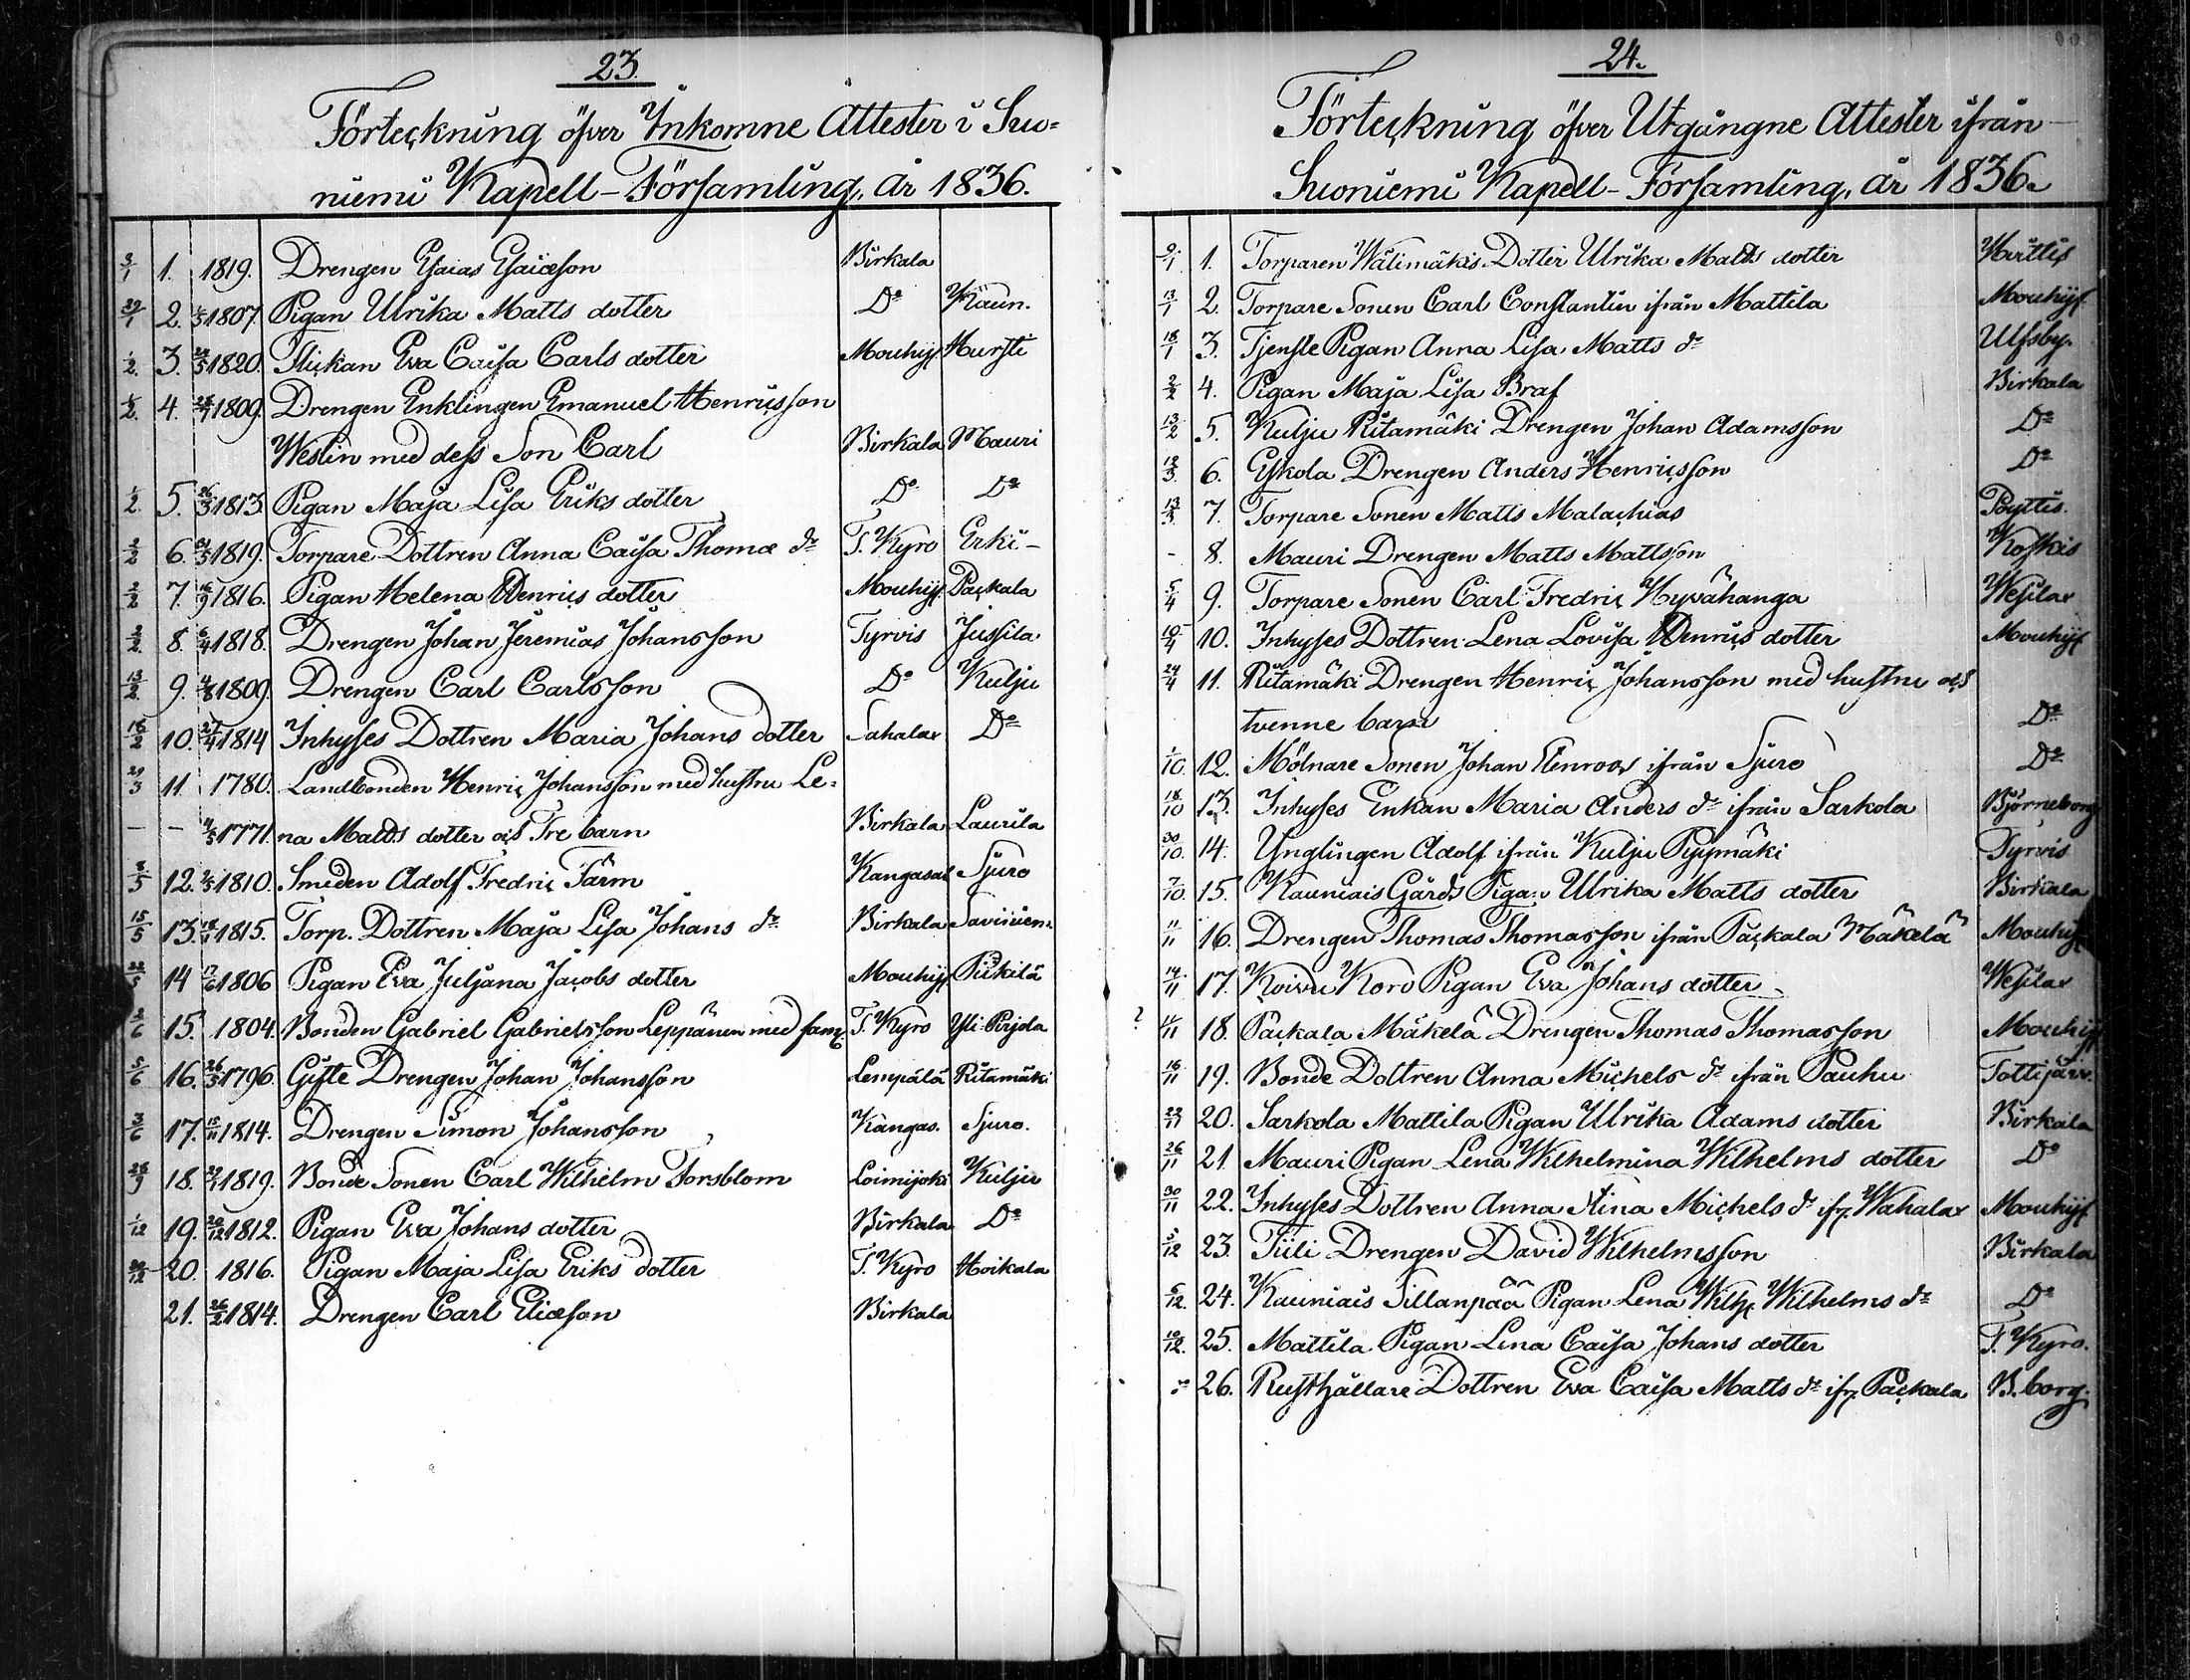 23.
Förteckning öfver Inkomne Attester i Suo-
niemi Kapell-Församling, år 1836.
3/1 1. 1819. Drengen Esaias Esaiæson Birkala
29/1 2. 1807. Pigan Ulrika Matts dotter Do Kaun.
1/2. 3. 1820. Flickan Eva Caisa Carls dotter Mouhij. Hursti
1/2. 4. 1809. Drengen Enklingen Emanuel Henricsson
Weslin med dess Son Carl Birkala Mauri
1/2. 5. 1813. Pigan Maja Lisa Eriks dotter Do Do
2/2 6. 1819. Torpare Dottren Anna Caisa Thomæ dr T. Kyro Erki-
2/2 7. 16/9 1816. Pigan Helena Henrics dotter Mouhij. Packala
2/2. 8. 6/4 1818. Drengen Johan Jeremias Johansson Tyrvis Jussila
13/2. 9. 4/8 1809. Drengen Carl Carlsson Do Kulju
16/2 10. 27/4 1814 Inhyses Dottren Maria Johans dotter Sahalax Do
29/3 11 1780. Landbonden Henric Johansson med hustru Le-
- - 4/5 1771. na Matts dotter och Tre barn Birkala Laurila
3/5 12. 1810. Smeden Adolf Fredric Färm Kangasal Sjuro
15/5 13. 1815. Torp. Dottren Maja Lisa Johans dr Birkala Saviniem.
22/5 14 17/6 1806 Pigan Eva Juljana Jacobs dotter Mouhij. Piikilä
3/6 15. 1804. Bonden Gabriel Gabrielsson Leppänen med fam. T. Kyro Yli-Pirjola
5/6 16. 26/5 1796 Gifte Drengen Johan Johansson Lempälä Ritamäki
3/6 17. 15/11 1814. Drengen Simon Johansson Kangas. Sjuro.
28/9 18. 1819. Bonde Sonen Carl Wilhelm Forsblom Loimijoki Kulju
1/12 19. 20/12 1812. Pigan Eva Johans dotter Birkala Do
20/12 20. 1816. Pigan Maja Lisa Eriks dotter T. Kyro Hoikala
21. 26/2 1814. Drengen Carl Eliæson Birkala
24.
Förteckning öfver Utgångne Attester ifrån
Suoniemi Kapell-Församling, år 1836.
9/1. 1. Torparen Wälimäkis Dotter Ulrika Matts dotter Hvittis
13/1 2. Torpare Sonen Carl Constantin ifrån Mattila Mouhij.
18/1 3. Tjenste Pigan Anna Lisa Matts dr Ulfsby.
2/2 4. Pigan Maja Lisa Braf Birkala
13/2 5. Kulju Ritamäki Drengen Johan Adamsson Do
12/3. 6. Eskola Drengen Anders Henricsson Do
13/3 7. Torpare Sonen Matts Malachias Poyttis.
- 8. Mauri Drengen Matts Mattsson Koskis
5/4 9. Torpare Sonen Carl Fredric Hyvähanga Wesilax
10/4 10. Inhyses Dottren Lena Lovisa Henrics dotter Mouhij.
24/4 11. Ritamäki Drengen Henric Johansson med hustru och
tvenne barn Do
1/10. 12. Mölnare Sonen Johan Elenroos ifrån Sjuro Do
18/10 13. Inhyses Enkan Maria Anders dr ifrån Sarkola Björneborg
30/10. 14. Ynglingen Adolf ifrån Kulju Pyymäki Tyrvis
7/10 15. Kauniais Gårds Pigan Ulrika Matts dotter Birkala
11/11 16. Drengen Thomas Thomasson ifrån Packala Mäkelä Mouhij.
14/11 17. Koivu Koro Pigan Eva Johans dotter Wesilax
? 11/11 18. Packala Mäkelä Drengen Thomas Thomasson Mouhij.
16/11 19. Bonde Dottren Anna Michels dr ifrån Pauhu Tottijärv.
22/11 20. Sarkola Mattila Pigan Ulrika Adams dotter Birkala
26/11 21 Mauri Pigan Lena Wilhelmina Wilhelms dotter Do
30/11 22. Inhyses Dottren Anna Stina Michels dr ifr. Wahalax Mouhij.
5/12 23. Tiili Drengen David Wilhelmsson Birkala
6/12. 24. Kauniais Sillanpää Pigan Lena Wilh. Wilhelms dr Do
10/12. 25. Mattila Pigan Lena Caisa Johans dotter T. Kyro.
26. Rusthållare Dottren Eva Caisa Matts dr ifr. Packala B.borg.